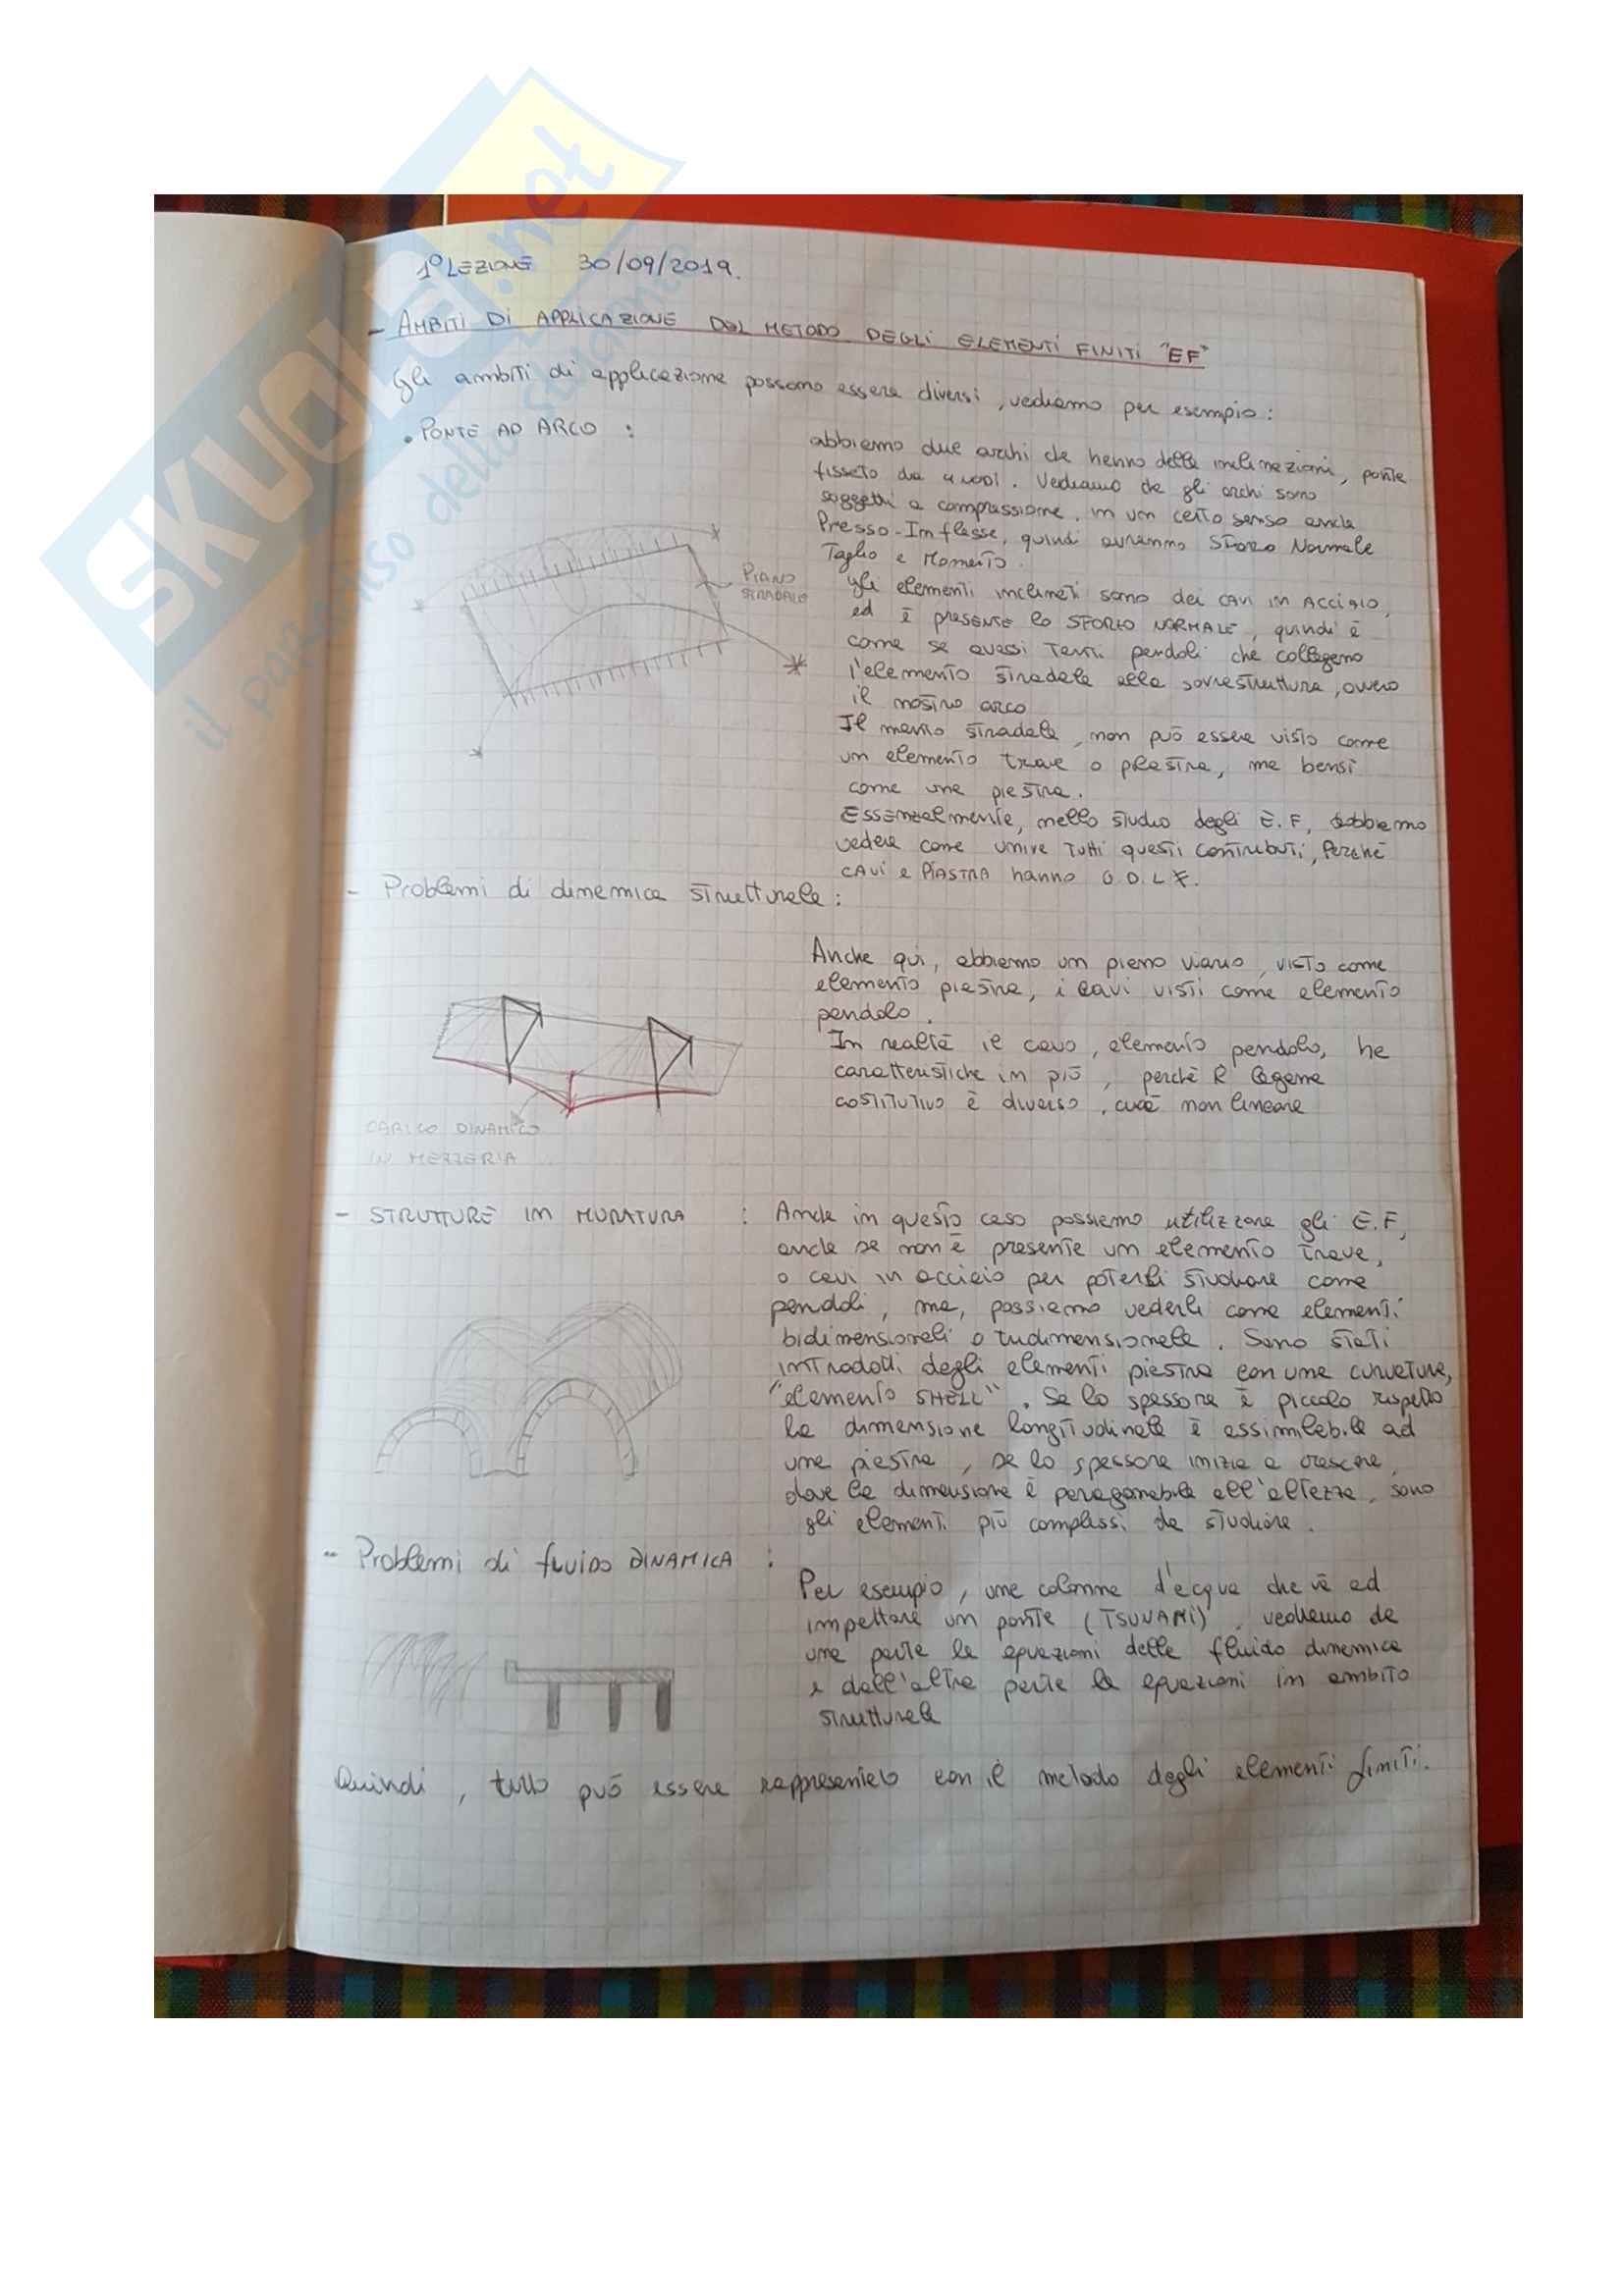 SKUOLA.net
il paradiso dello studente
1° LEZIONE 30/09/2019.
- AMBITI DI APPLICAZIONE DEL METODO DEGLI ELEMENTI FINITI "EF"
Gli ambiti di applicazione possono essere diversi, vediamo per esempio:
• PONTE AD ARCO :
abbiamo due archi che hanno delle inclinazioni, ponte
fissato da 4 nodi. Vediamo che gli archi sono
soggetti a compressione, in un certo senso anche
Presso-Inflesse, quindi avremmo Sforzo Normale
Taglio e Momento.
PIANO
STRADALE
gli elementi inclinati sono dei CAVI IN ACCIAIO,
ed è PRESENTE lo SFORZO NORMALE, quindi è
come se avessi tanti pendoli che collegano
l'elemento stradale alla sovrastruttura, ovvero
il nostro arco
Il manto stradale, non può essere visto come
un elemento trave o piastra, ma bensì
come una piastra.
Essenzialmente, nello studio degli E.F, dobbiamo
vedere come unire tutti questi contributi, Perchè
CAVI e PIASTRA hanno G.D.L ≠.
- Problemi di dinamica strutturale :
Anche qui, abbiamo un piano viario, visto come
elemento piastra, i cavi visti come elemento
pendolo.
In realtà il cavo, elemento pendolo, ha
caratteristiche in più, perchè il legame
costitutivo è diverso, cioè non lineare
CARICO DINAMICO
IN MEZZERIA
- STRUTTURE IN MURATURA : Anche in questo caso possiamo utilizzare gli E.F,
anche se non è presente un elemento trave,
o cavi in acciaio per poterli studiare come
pendoli, ma, possiamo vederli come elementi
bidimensionali o tridimensionale. Sono stati
introdotti degli elementi piastra con una curvatura,
"elemento SHELL". Se lo spessore è piccolo rispetto
la dimensione longitudinale è assimilabile ad
una piastra, se lo spessore inizia a crescere,
dove la dimensione è paragonabile all'altezza, sono
gli elementi più complessi da studiare.
- Problemi di fluido DINAMICA :
Per esempio, una colonna d'acqua che và ad
impattare un ponte (TSUNAMI), vediamo da
una parte le equazioni della fluido dinamica
e dall'altra parte le equazioni in ambito
strutturale
Quindi, tutto può essere rappresentato con il metodo degli elementi finiti.